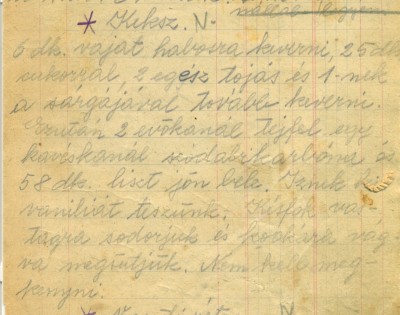 * Keksz. N-
6 dk. vajat habosra keverni, 25 dk
cukorral, 2 egész tojás és 1-nek
a sárgájával tovább keverni.
Ezután 2 evőkanál tejfel egy
kavéskanál szódabikarbóna és
58 dk. liszt jön bele. Iznek ki
vaniliát teszünk. Késfok vas-
tagra sodorjuk és kockára vag-
va megsütjük. Nem kell meg-
kenyni.